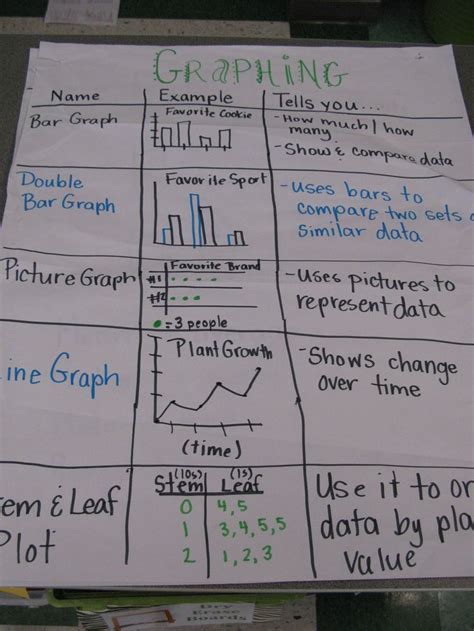 GRAPHING
Name
Example
Tells you...
Bar Graph
Favorite Cookie
-How much/how
many
-Show & compare data
Double
Bar Graph
Favorite Sport
-uses bars to
compare two sets
similar data
Picture Graph
Favorite Brand
#1
#2
= 3 people
-Uses pictures to
represent data
ine Graph
Plant Growth
(time)
-Shows change
over time
em & Leaf
Plot
(10s) (1s)
Stem Leaf
0 4,5
1 3,4,5,5
2 1,2,3
Use it to or
data by pla
value
Dry
Erase
Boards